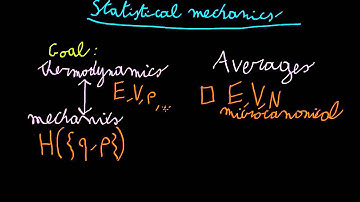 Statistical mechanics
Goal:
thermodynamics
E, V, p, ..
mechanics
H({q, p})
Averages
E, V, N
microcanonical